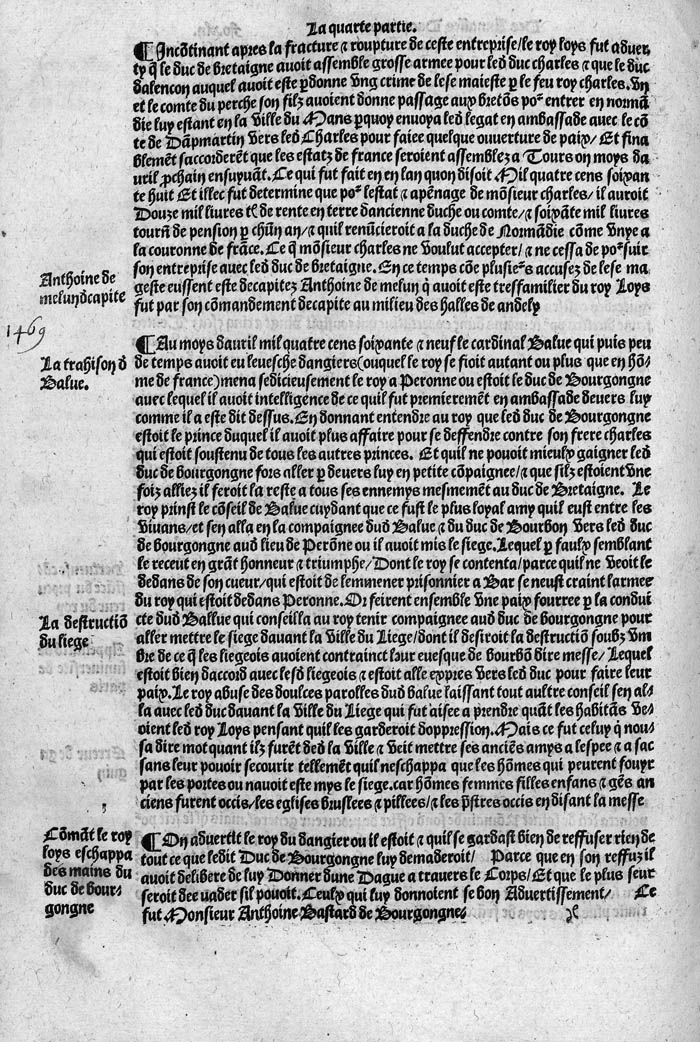 La quarte partie.
¶ Incõtinant apres la fracture ⁊ roupture de ceste entreprise/le roy loys fut aduer
ty q̃ le duc de bretaigne auoit assemble grosse armee pour led duc charles ⁊ que le duc
dalencon auquel auoit este p̱donne vng crime de lese maieste p̱ le feu roy charles.vn
et le comte du perche son filz auoient donne passage aux bretõs po² entrer en normã
die luy estant en la ville du Mans p̱quoy enuoya led legat en ambassade auec le cõ
te de Dãpmartin vers led Charles pour faiee quelque ouuerture de paix/ Et fina
blemẽt saccorderẽt que les estatz de france seroient assemblez a Tours on moys da
uril p̱chain ensuyuãt. Ce qui fut fait en en lan quon disoit Mil quatre cens soixan
te huit Et illec fut determine que po² lestat ⁊ apẽnage de mõsieur charles/ il auroit
Douze mil liures tl̃ de rente en terre dancienne duche ou comte/⁊ soixãte mil liures
tourñ de pension p̱ chũn an/⁊ quil renũcieroit a la duche de Normãdie cõme vnye a
la couronne de frãce. Ce q̃ mõsieur charles ne voulut accepter/⁊ ne cessa de po²suir
son entreprise auec led duc de bretaigne. En ce temps cõe plusie²s accusez de lese ma
geste eussent este decapitez Anthoine de melun q̃ auoit este tresfamilier du roy Loys
fut par son cõmandement decapite au milieu des halles de andely
Anthoine de
melun dcapite
1469
¶ Au moys dauril mil quatre cens soixante ⁊ neuf le cardinal Balue qui puis peu
de temps auoit eu leuesche dangiers(ouquel le roy se fioit autant ou plus que en hõ-
me de france)mena sedicieusement le roy a Peronne ou estoit le duc de Bourgongne
auec lequel il auoit intelligence de ce quil fut premieremẽt en ambassade deuers luy
comme il a este dit dessus. En donnant entendre au roy que led duc de Bourgongne
estoit le prince duquel il auoit plus affaire pour se deffendre contre son frere charles
qui estoit soustenu de tous les autres princes. Et quil ne pouoit mieulx gaigner led
duc de bourgongne fors aller p̱ deuers luy en petite cõpaignee/⁊ que silz estoient vne
foiz alliez il feroit la reste a tous ses ennemys mesmemẽt au duc de Bretaigne. Le
roy prinst le cõseil de Balue cuydant que ce fust le plus loyal amy quil eust entre les
viuans/et sen alla en la compaignee dud Balue ⁊ du duc de Bourbon vers led duc
de bourgongne aud lieu de Perõne ou il auoit mis le siege. Lequel p̱ faulx semblant
le receut en grãt honneur ⁊ triumphe/ Dont le roy se contenta/parce quil ne veoit le
dedans de son cueur/qui estoit de lemmener prisonnier a Bar se neust craint larmee
du roy qui estoit dedans Peronne. Or feirent ensemble vne paix fourree p̱ la condui
cte dud Ballue qui conseilla au roy tenir compaignee aud duc de bourgongne pour
aller mettre le siege dauant la ville du Liege/dont il desiroit la destructiõ soubz vm
bre de ce q̃ les liegeois auoient contrainct leur euesque de bourbõ dire messe/ Lequel
estoit bien daccord auec lesd liegeois ⁊ estoit alle expres vers led duc pour faire leur
paix. Le roy abuse des doulces parolles dud balue laissant tout aultre conseil sen al-
la auec led duc dauant la ville du Liege qui fut aisee a prendre quãt les habitãs ve-
oient led roy Loys pensant quil les garderoit doppression. Mais ce fut celuy q̃ nou-
sa dire mot quant ilz furẽt ded la ville ⁊ veit mettre ses anciẽs amys a lespee ⁊ a sac
sans leur pouoir secourir tellemẽt quil neschappa que les hõmes qui peurent fouyr
par les portes ou nauoit este mys le siege. car hõmes femmes filles enfans ⁊ gẽs an
ciens furent occis/les eglises bruslees ⁊ pillees/⁊ les p̃stres occis en disant la messe
La trahison d
Balue.
La destructiõ
du liege
¶ On aduertit le roy du dangier ou il estoit ⁊ quil se gardast bien de reffuser rien de
tout ce que ledit Duc de Bourgongne luy demaderoit/ Parce que en son reffuz il
auoit delibere de luy Donner dune Dague a trauers le Corps/ Et que le plus seur
seroit dee uader sil pouoit. Ceulx qui luy donnoient se bon Aduertissement/ Ce
fut Monsieur Anthoine Bastard de Bourgongne/
Cõmãt le roy
loys eschappa
des mains du
duc de bour-
gongne